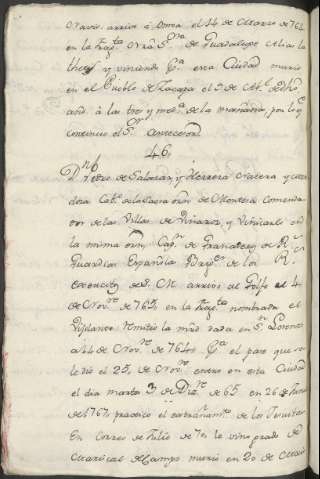 arrivó á Omoa el 14 de Marzo de 76
en la Frag.ta Nrâ S.ra de Guadalupe
y viniendo p.a esta Ciudad murió
en el Pueblo de Zacapa el 5 de
año à las tres y med.a de la mañana por lo q.e
continuó el S.r antecesor
46.
D.n Pedro de Salazar, y Herrera Natera y
dora Cab.o de la orn de Montesa Comenda
dor de las Villas de Vinaroz, y Benicarló en
la misma orn, Cap.n de Granaderos de R.s
Guardias Españolas de los R.s
exercitos de S. M. arrivó al Golfo el 4.
de Nov.re de 765 en la Frag.ta nombrada el
Vigilante. Remitió la mrd dada en S.n Lorenzo
a 14 de Nov.re de 764 el pase que se
le dio el 25 de Nov.re entró en esta Ciudad
el dia martes 3 de Diz.re de 65. en 26 de Junio
de 1767 practicó el estrañam.to de los Jesuitas
En Correo de Julio de 70 le vino grado de
Mariscal de Campo murió en 20 de Mayo